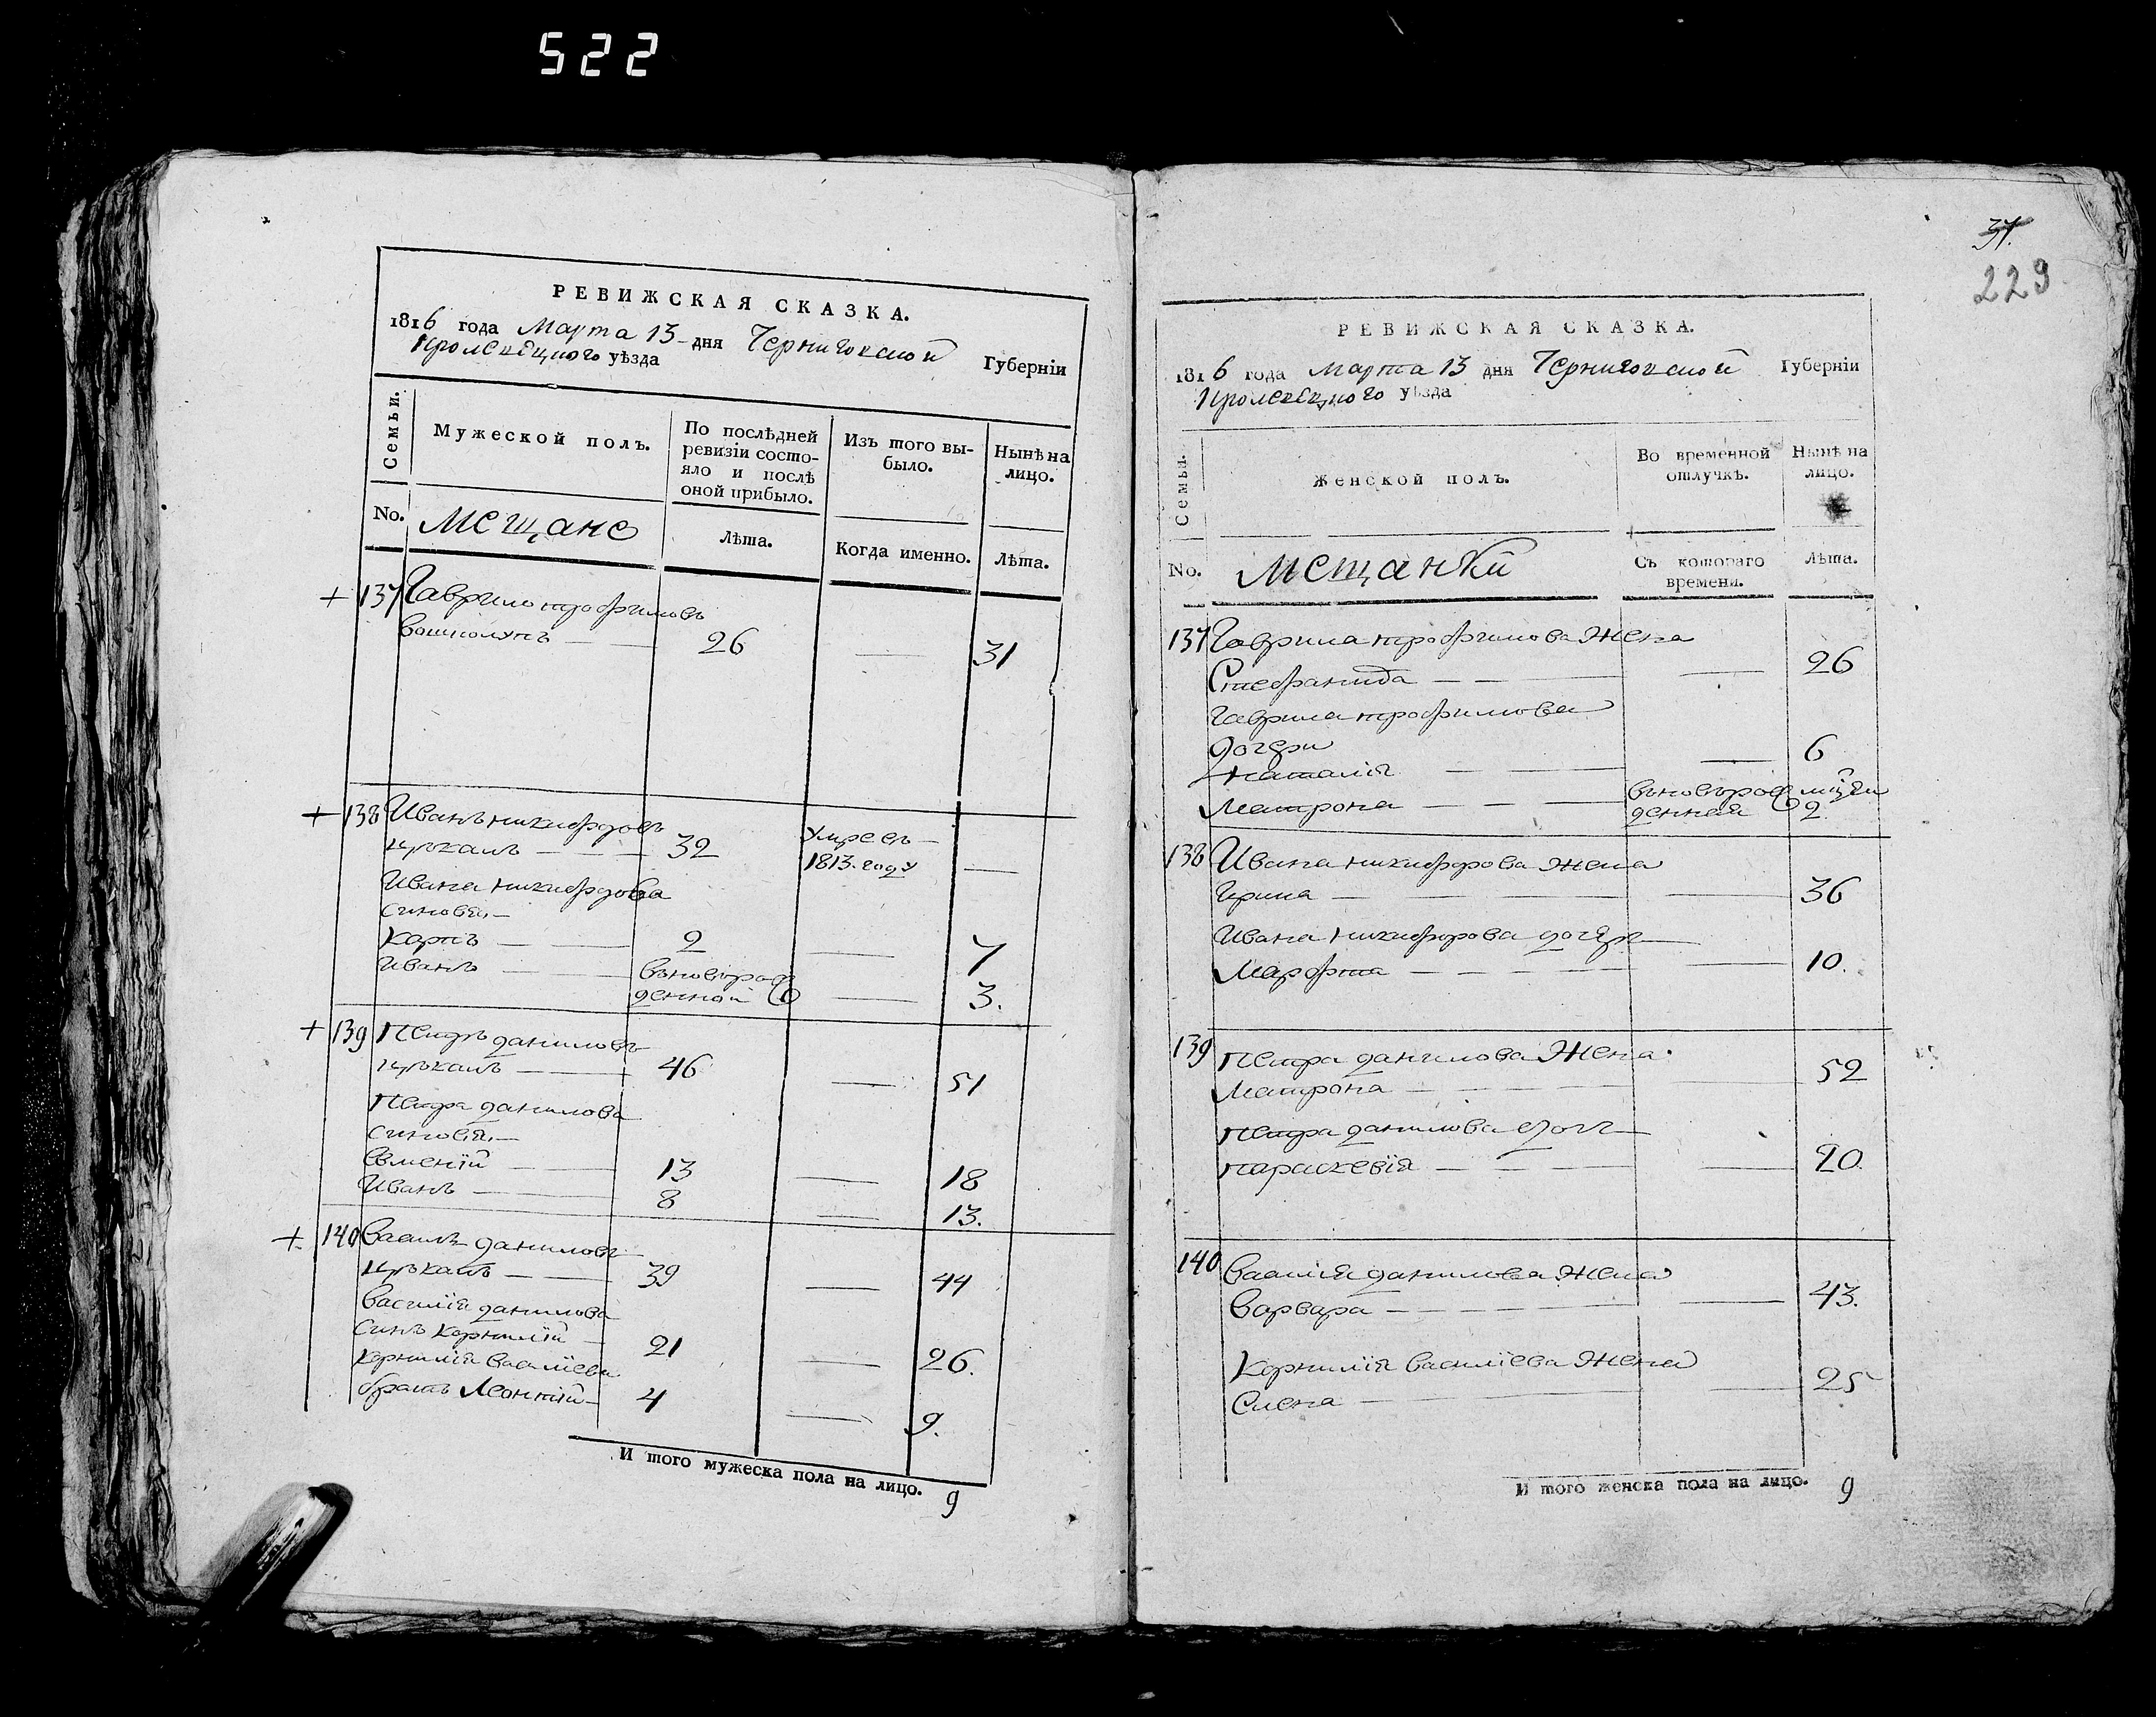 522
РЕВИЖСКАЯ СКАЗКА.
1816 года Марта 13 дня Черниговской Губерніи
Кролевецкого уѣзда
Семьи.
Мужеской полъ.
По послѣдней ревизіи состо-
яло и послѣ
оной прибыло.
Изъ того вы-
было.
Нынѣ на
лицо.
No.
Мещане
Лѣта.
Когда именно.
Лѣта.
+ 137 Гаврило трофимовъ
26 — 31
+ 138 Иванъ никифоровъ
цѣкалъ — 32 умре въ
1813. году —
Ивана никифорова
синовя,
Карпъ — 2 — 7
Иванъ — вновърож
денной — 3.
+ 139 Петръ даниловъ
цѣкалъ — 46 — 51
Петра данилова
синовя,
Евмений — 13 — 18
Иванъ — 8 — 13.
+ 140 Василь даниловъ
цѣкалъ — 39 — 44
Василія данилова
синъ Корнилій — 21 — 26.
Корнилія Василіева
братъ Леонтій — 4 — 9.
И того мужеска пола на лицо. 9
37.
229
РЕВИЖСКАЯ СКАЗКА.
1816 года Марта 13 дня Черниговской Губерніи
Кролевецкого уѣзда
Семьи.
Женской полъ.
Во временной
отлучкѣ.
Нынѣ на
лицо.
No.
Мещанки
Съ котораго
времени.
Лѣта.
137 Гаврила трофимова Жена
Стефанида — — 26
Гаврила трофимова
дочери
Наталія — — 6
Матрона — вновърож
денная 2.
138 Ивана никифорова жена
Ирина — — 36
Ивана никифорова дочерь
Марфа — — 10.
139 Петра данилова Жена
Матрона — 52
Петра данилова дочь
Параскевія — — 20.
140 Василія данилова Жена
Варвара — — 43.
Корнилія Василіева Жена
Елена — — 25
И того женска пола на лицо. 9